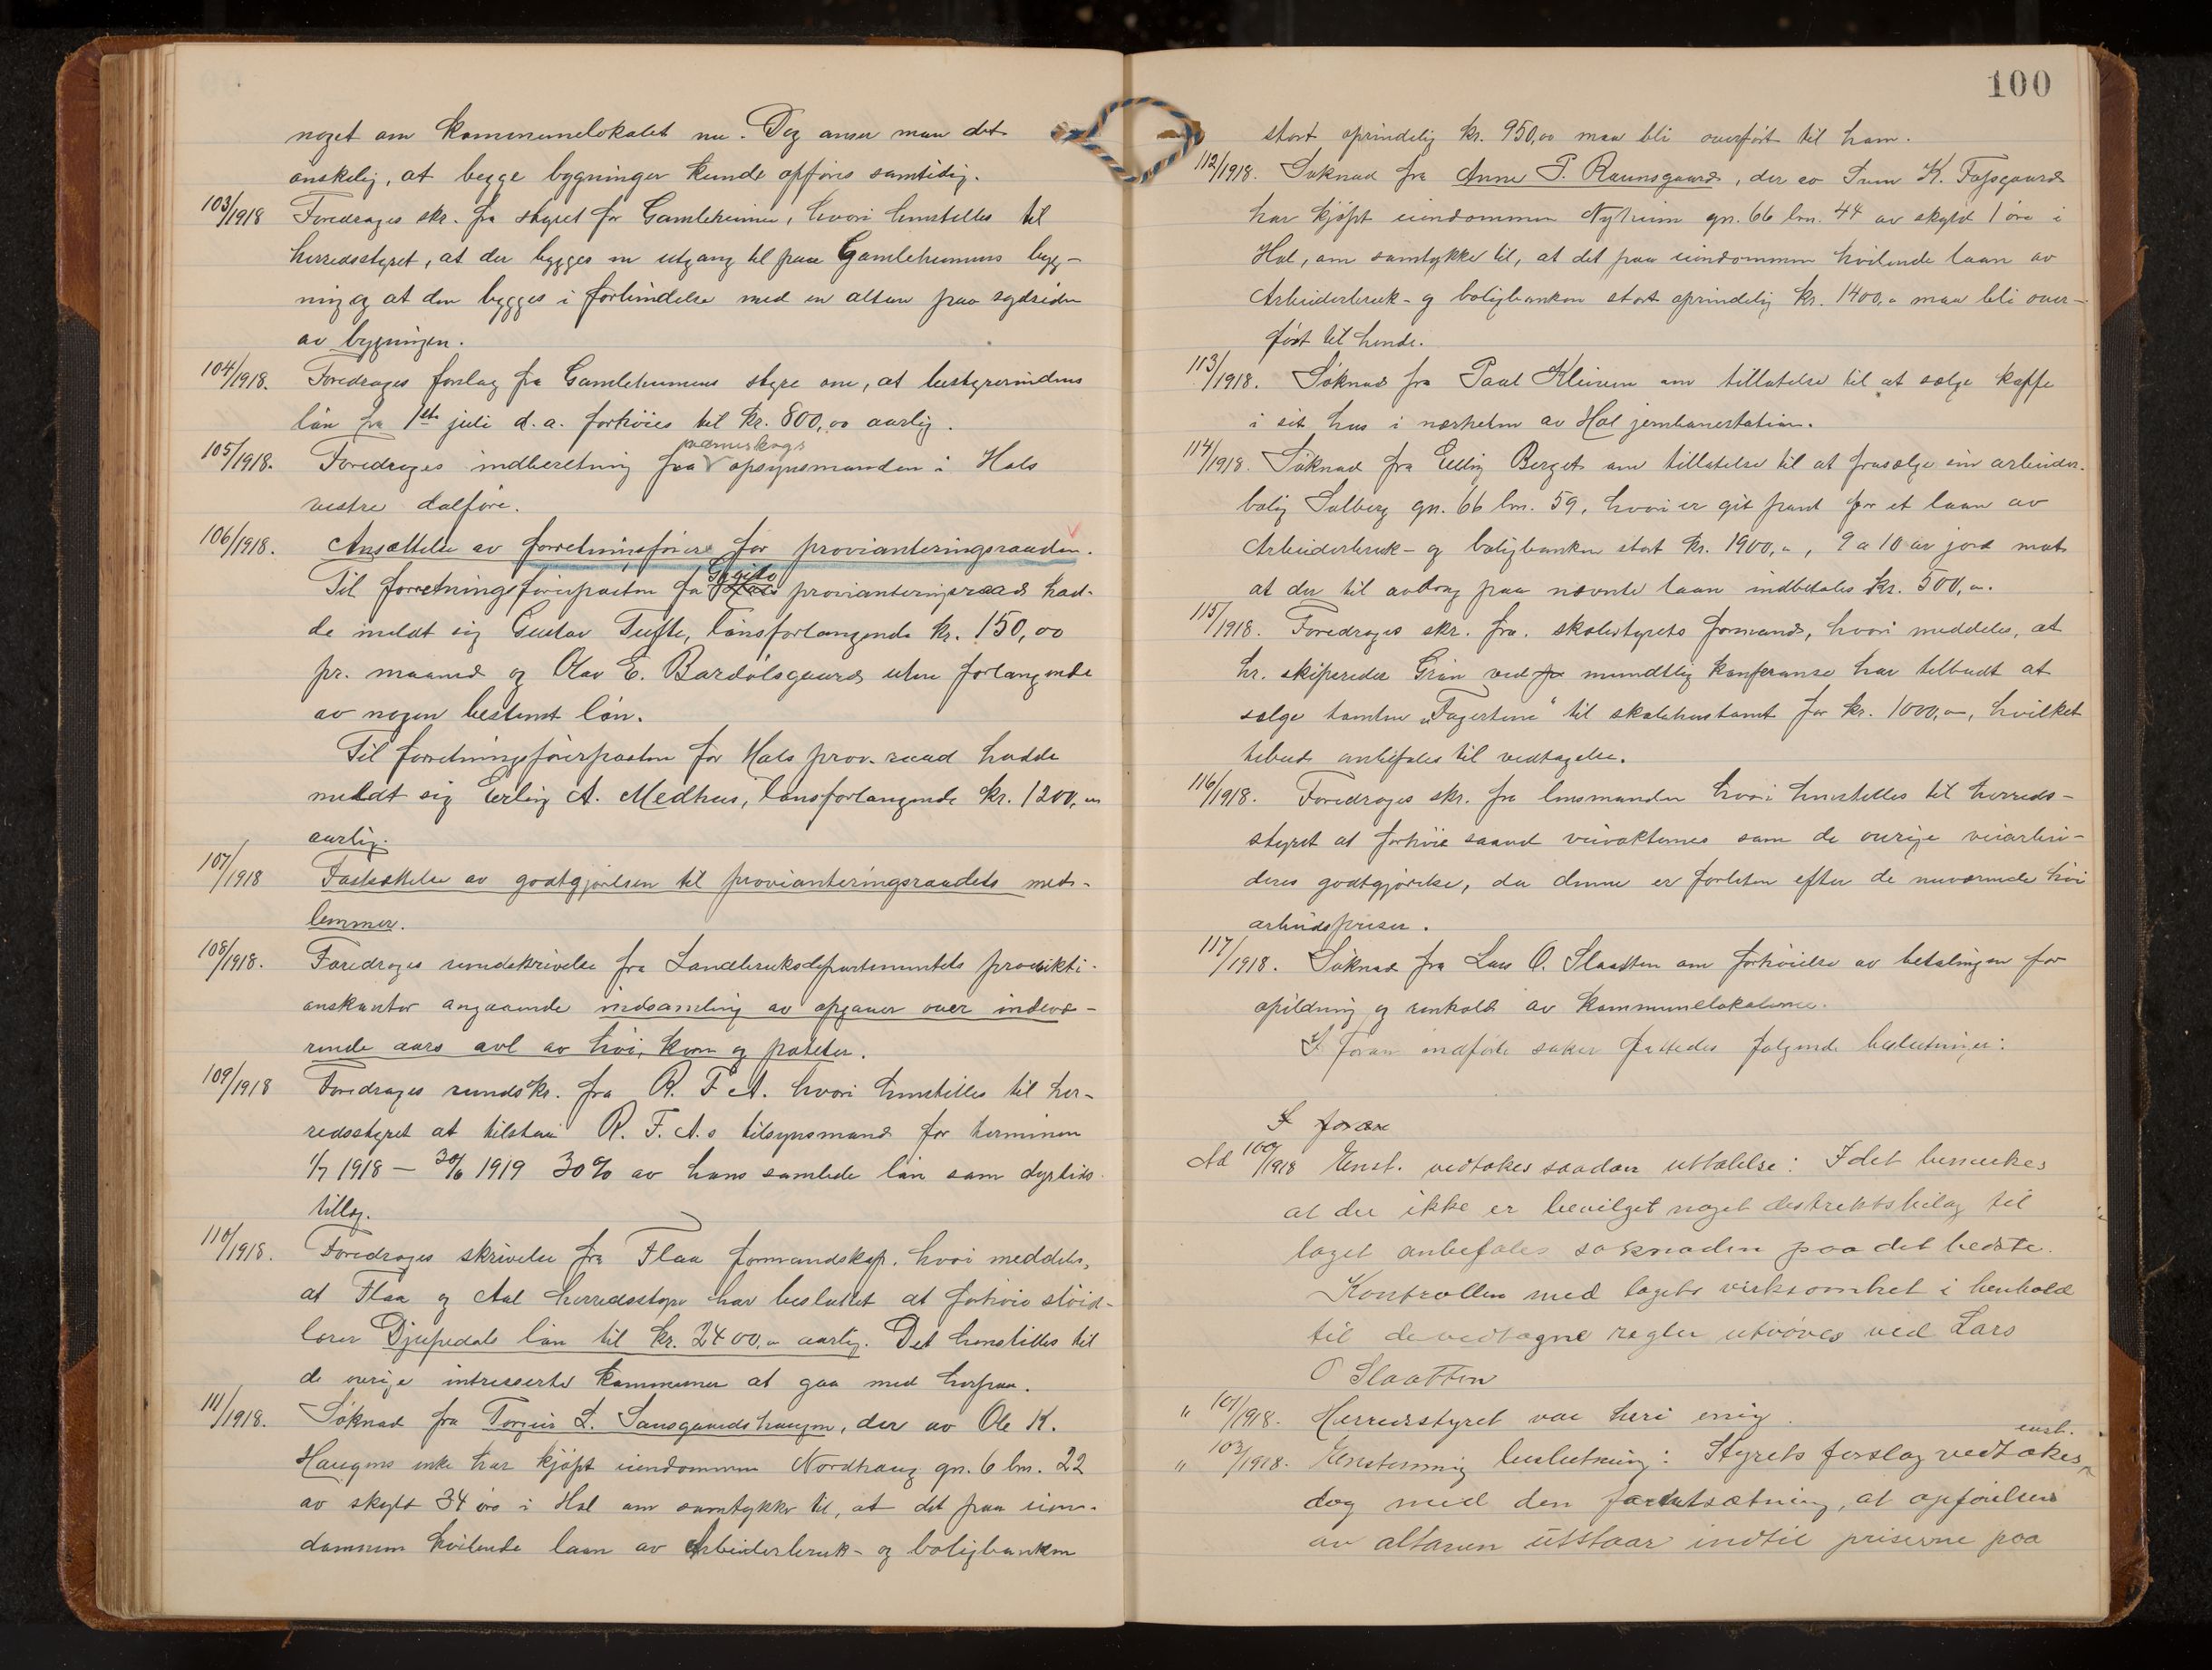 noget om kommunelokalet nu. Dog anser man det
ønskelig, at begge bygninger kunde opføres samtidig.
103/1918 Foredrages skr. fra styret for Gamleheimen, hvori henstilles til
herredsstyret, at der bygges en utgang til paa Gamleheimens byg-
ning og at den bygges i forbindelse med en altan paa sydsiden
av bygningen.
104/1918. Foredrages forslag fra Gamleheimens styre om, at bestyrerindens
løn fra 1ste juli d. a. forhøies til kr. 800,00 aarlig.
105/1918. Foredrages indberetning fra opsynsmanden i Hols
vestre dalføre.
106/1918. Ansættelse av forretningsførere for provianteringsraaden.
Til forretningsførerposten for provianteringsraad had-
de meldt sig Gustav Tufte, lønsforlangende kr. 150,00
pr. maaned og Olav E. Bardølsgaard uten forlangende
av nogen bestemt løn.
Til forretningsførerposten for Hols prov. raad hadde
meldt sig Erling A. Medhus, lønsforlangende kr. 1200,00
aarlig.
107/1918 Fastsættelse av godtgjørelsen til provianteringsraadets med-
lemmer.
108/1918. Foredrages rundskrivelse fra Landbruksdepartementets produkti-
onskontor angaaende indsamling av opgaver over indevæ-
rende aars avl av høi, korn og poteter.
109/1918 Foredrages rundskr. fra R. F. A. hvori henstilles til her-
redsstyret at tilstaa R. F. A.s tilsynsmand for terminen
1/7 1918 – 30/6 1919 30% av hans samlede løn som dyrtids-
tillæg.
110/1918. Foredrages skrivelse fra Flaa formandskap, hvori meddeles,
at Flaa og Aal herredsstyre har besluttet at forhøie sløid-
lærer Djupedals løn til kr. 2400,00 aarlig. Det henstilles til
de øvrige interesserte kommuner at gaa med herpaa.
111/1918. Søknad fra Torgeir L. Sansgaardshaugen, der av Ole K.
Haugens enke har kjøpt eiendommen Nordhaug gn. 6 bn. 22
av skyld 34 øre i Hol om samtykke til, at det paa eien-
dommen hvilende laan av Arbeiderbruk- og boligbanken
100
stort oprindelig kr. 950,00 maa bli overført til ham.
112/1918. Søknad fra Anne P. Raunsgaard, der av K.
har kjøpt eiendommen Nyheim gn. 66 bn. 44 av skyld 1 øre i
Hol, om samtykke til, at det paa eiendommen hvilende laan av
Arbeiderbruk- og boligbanken stort oprindelig kr. 1400,00 maa bli over-
ført til hende.
113/1918. Søknad fra Paul Kleiven om tillatelse til at sælge kaffe
i sit hus i nærheten av Hol jernbanestation.
114/1918. Søknad fra Elling Berget om tillatelse til at frasælge sin arbeider-
bolig Solberg gn. 66 bn. 59, hvori er git pant for et laan av
Arbeiderbruk- og boligbanken stort kr. 1900,00, 9 a 10 ar jord mot
at der til avdrag paa nævnte laan indbetales kr. 500,00.
115/1918. Foredrages skr. fra skolestyrets formand, hvori meddeles, at
hr. skibsreder Grøn ved fra mundtlig konferanse har tilbudt at
sælge tomten „Fagertun“ til skolehustomt for kr. 1000,00, hvilket
tilbud anbefales til vedtagelse.
116/1918. Foredrages skr. fra lensmanden hvori henstilles til herreds-
styret at forhøie saavel veivokternes som de øvrige veiarbei-
deres godtgjørelse, da denne er forliten efter de nuværende høie
arbeidspriser.
117/1918. Søknad fra Lars O. Slaatten om forhøielse av betalingen for
opildning og renhold av kommunelokalerne.
I foran indførte saker fattedes følgende beslutninger:
I foran
Ad 100/1918 Enst. vedtokes saadan uttalelse: Idet bemerkes
at der ikke er bevilget noget distriktsbidrag til
laget anbefales søknaden paa det bedste.
Kontrollen med lagets virksomhet i henhold
til de vedtagne regler utøves ved Lars
O Slaatten
" 101/1918. Herredsstyret var heri enig.
" 103/1918. Enstemmig beslutning: Styrets forslag vedtokes enst.
dog med den forutsætning, at opførelsen
av altanen utstaar indtil priserne paa